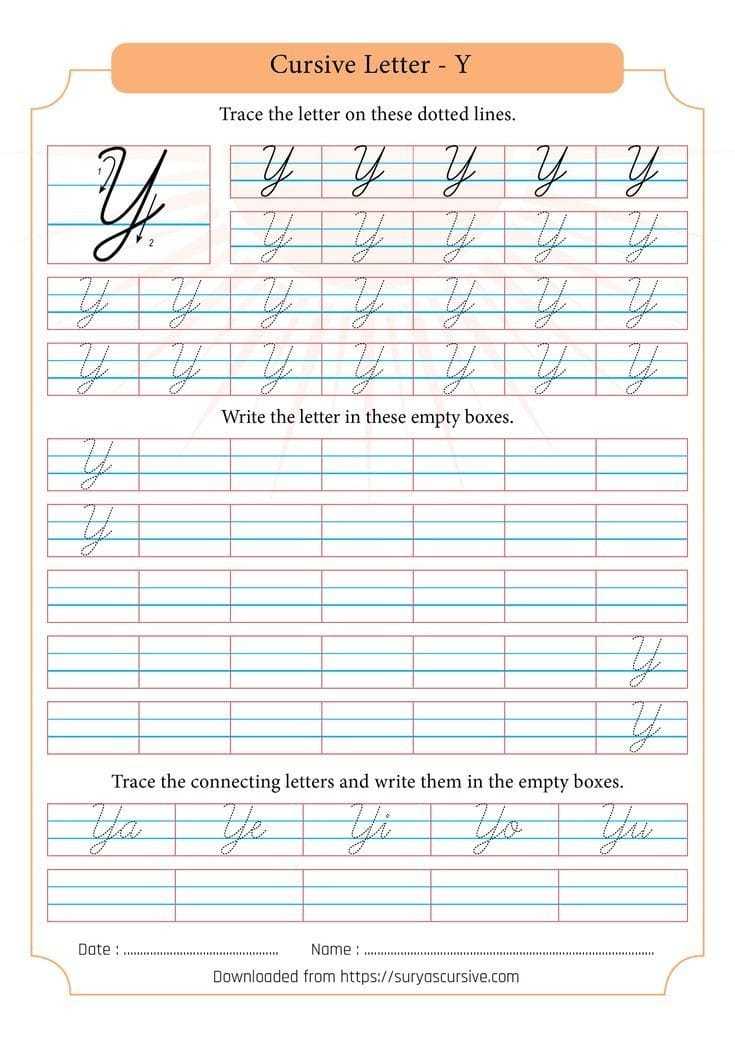 Cursive Letter - Y
Trace the letter on these dotted lines.
1 Y 2
Y Y Y Y Y
Y Y Y Y Y
Y Y Y Y Y Y Y
Y Y Y Y Y Y Y
Write the letter in these empty boxes.
Y
Y
Y
Y
Trace the connecting letters and write them in the empty boxes.
Ya Ye Yi Yo Yu
Date : ............................................... Name : ....................................................................................
Downloaded from https://suryascursive.com